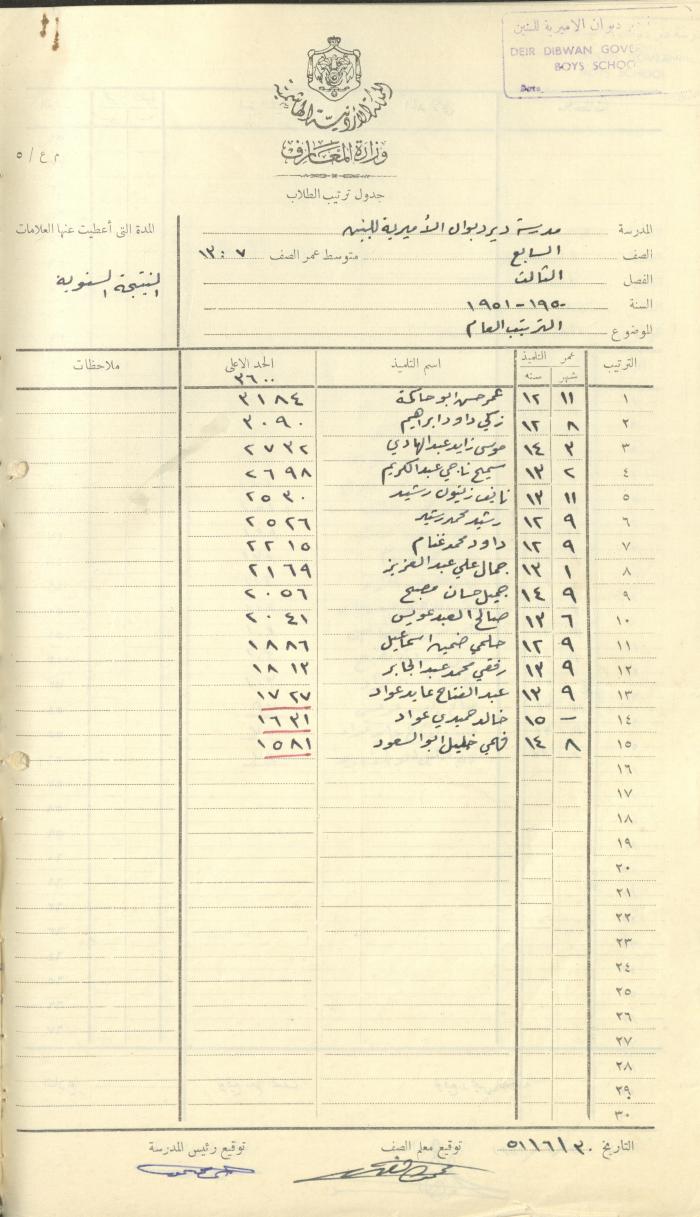 دير ديوان الاميرية للبنين
DEIR DIBWAN GOVE
BOYS SCHOO
Date
المملكة الأردنية الهاشمية
وزارة المعارف
م ع / ٥
جدول ترتيب الطلاب
المدرسة مدرسة ديرديوان الأميرية للبنين
المدة التى أعطيت عنها العلامات
الصف السابع متوسط عمر الصف ١٣:٠٧
النتيجة السنوية
الفصل الثالث
السنة ١٩٥٠-١٩٥١
الموضوع الترتيب العام
الترتيب عمر التلميذ اسم التلميذ الحد الاعلى ملاحظات
شهر سنه ٣٦٠٠
١ ١١ ١٢ عمر حسن ابو حاكمة ٣١٨٤
٢ ٨ ١٢ زكي داود ابراهيم ٣٠٩٠
٣ ٣ ١٤ موسى زايد عبد الهادي ٢٧٣٢
٤ ٢ ١٣ سميح ناجي عبد الكريم ٢٦٩٨
٥ ١١ ١٣ نايف زيتون رشيد ٢٥٣٠
٦ ٩ ١٢ رشيد محمد رشيد ٢٥٢٦
٧ ٩ ١٢ داود محمد غنام ٢٢١٥
٨ ١ ١٣ جمال علي عبد العزيز ٢١٦٩
٩ ٩ ١٤ جميل حسان مصبح ٢٠٥٦
١٠ ٦ ١٣ صالح العبد عويس ٢٠٤١
١١ ٩ ١٢ حلمي ضمين اسماعيل ١٨٨٦
١٢ ٩ ١٣ رفقي محمد عبد الجابر ١٨١٣
١٣ ٩ ١٣ عبد الفتاح عايد عواد ١٧٢٧
١٤ — ١٥ خالد حميدي عواد ١٦٣١
١٥ ٨ ١٤ فهمي خليل ابو السعود ١٥٨١
١٦
١٧
١٨
١٩
٢٠
٢١
٢٢
٢٣
٢٤
٢٥
٢٦
٢٧
٢٨
٢٩
٣٠
التاريخ ٣٠/٦/٥١ توقيع معلم الصف توقيع رئيس المدرسة